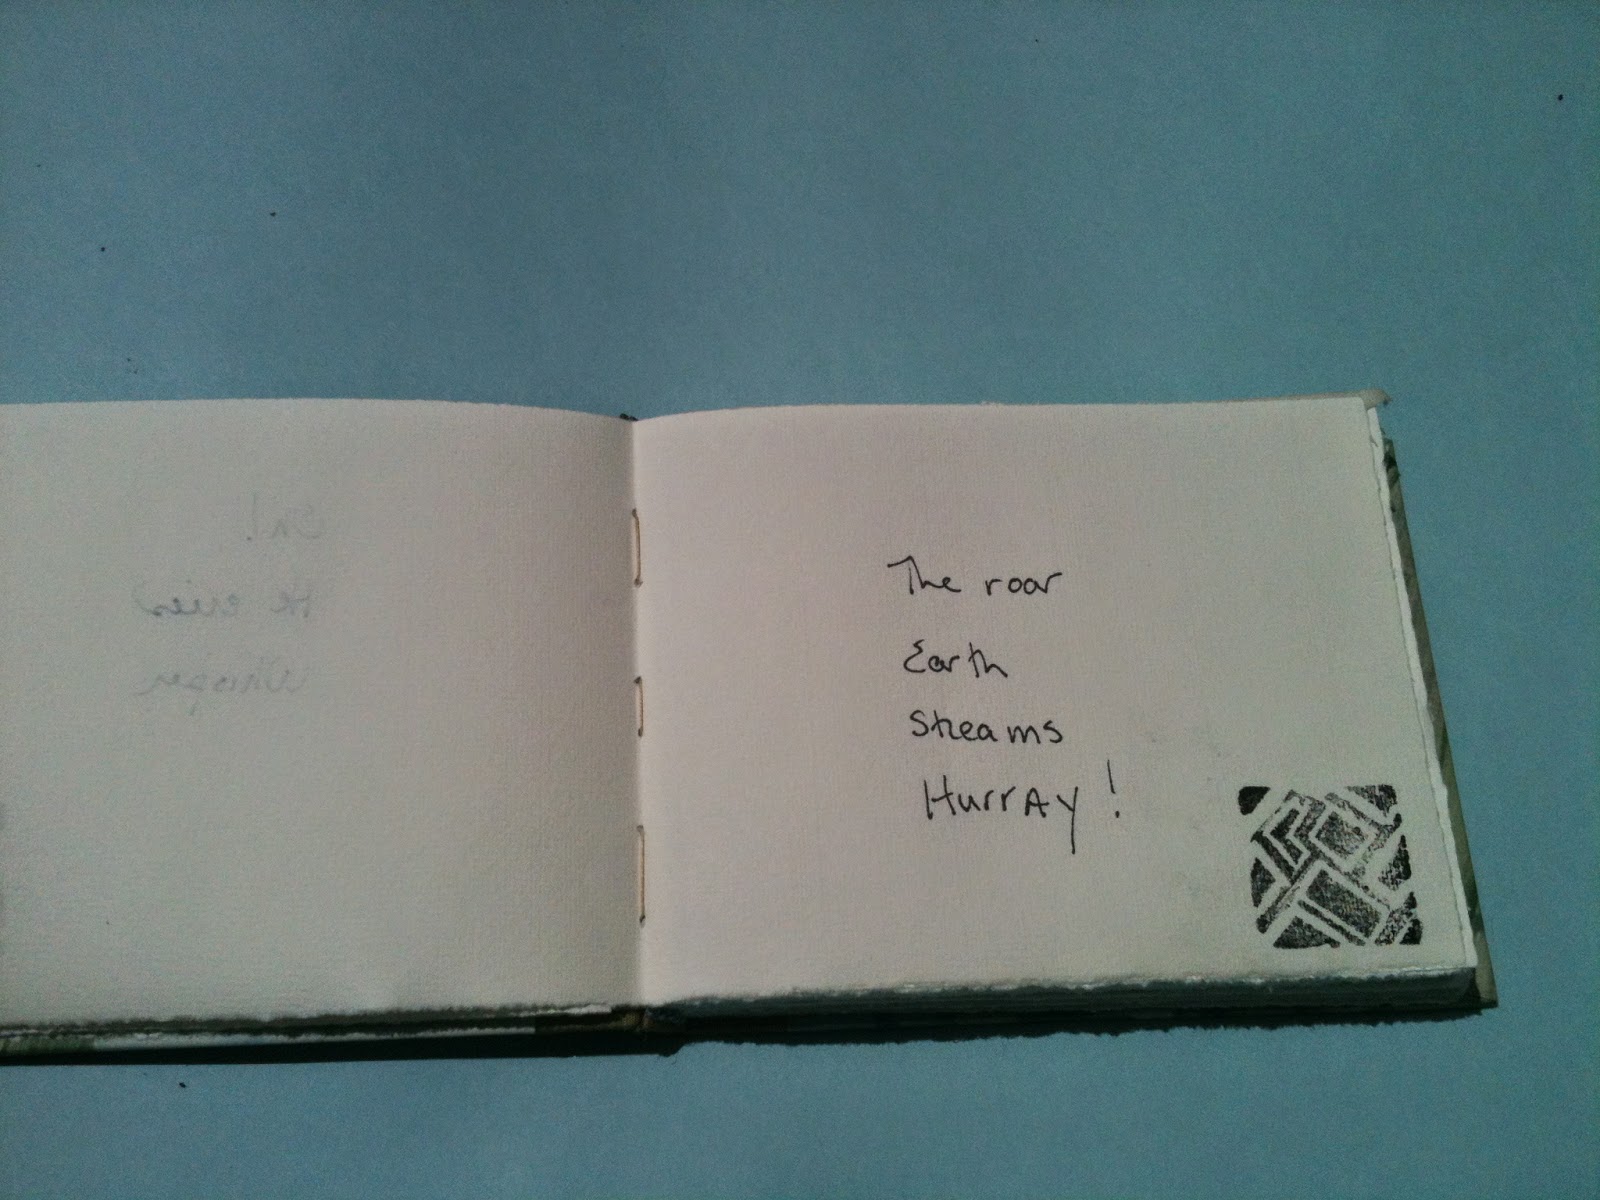 The roar
Earth
Streams
HurrAy!